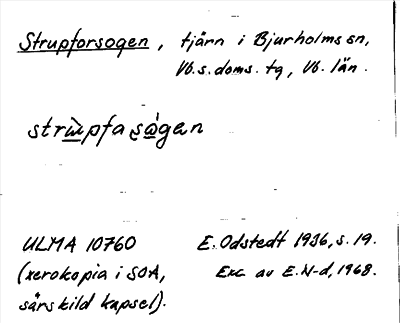 Strupforsogen, tjärn i Bjurholms sn,
Vb.s. doms. tg, Vb. län.
strùpfa sògen
ULMA 10760
(xerokopia i SOA,
särskild kapsel).
E. Odstedt 1936, s. 19.
Exc. av E. N-d, 1968.